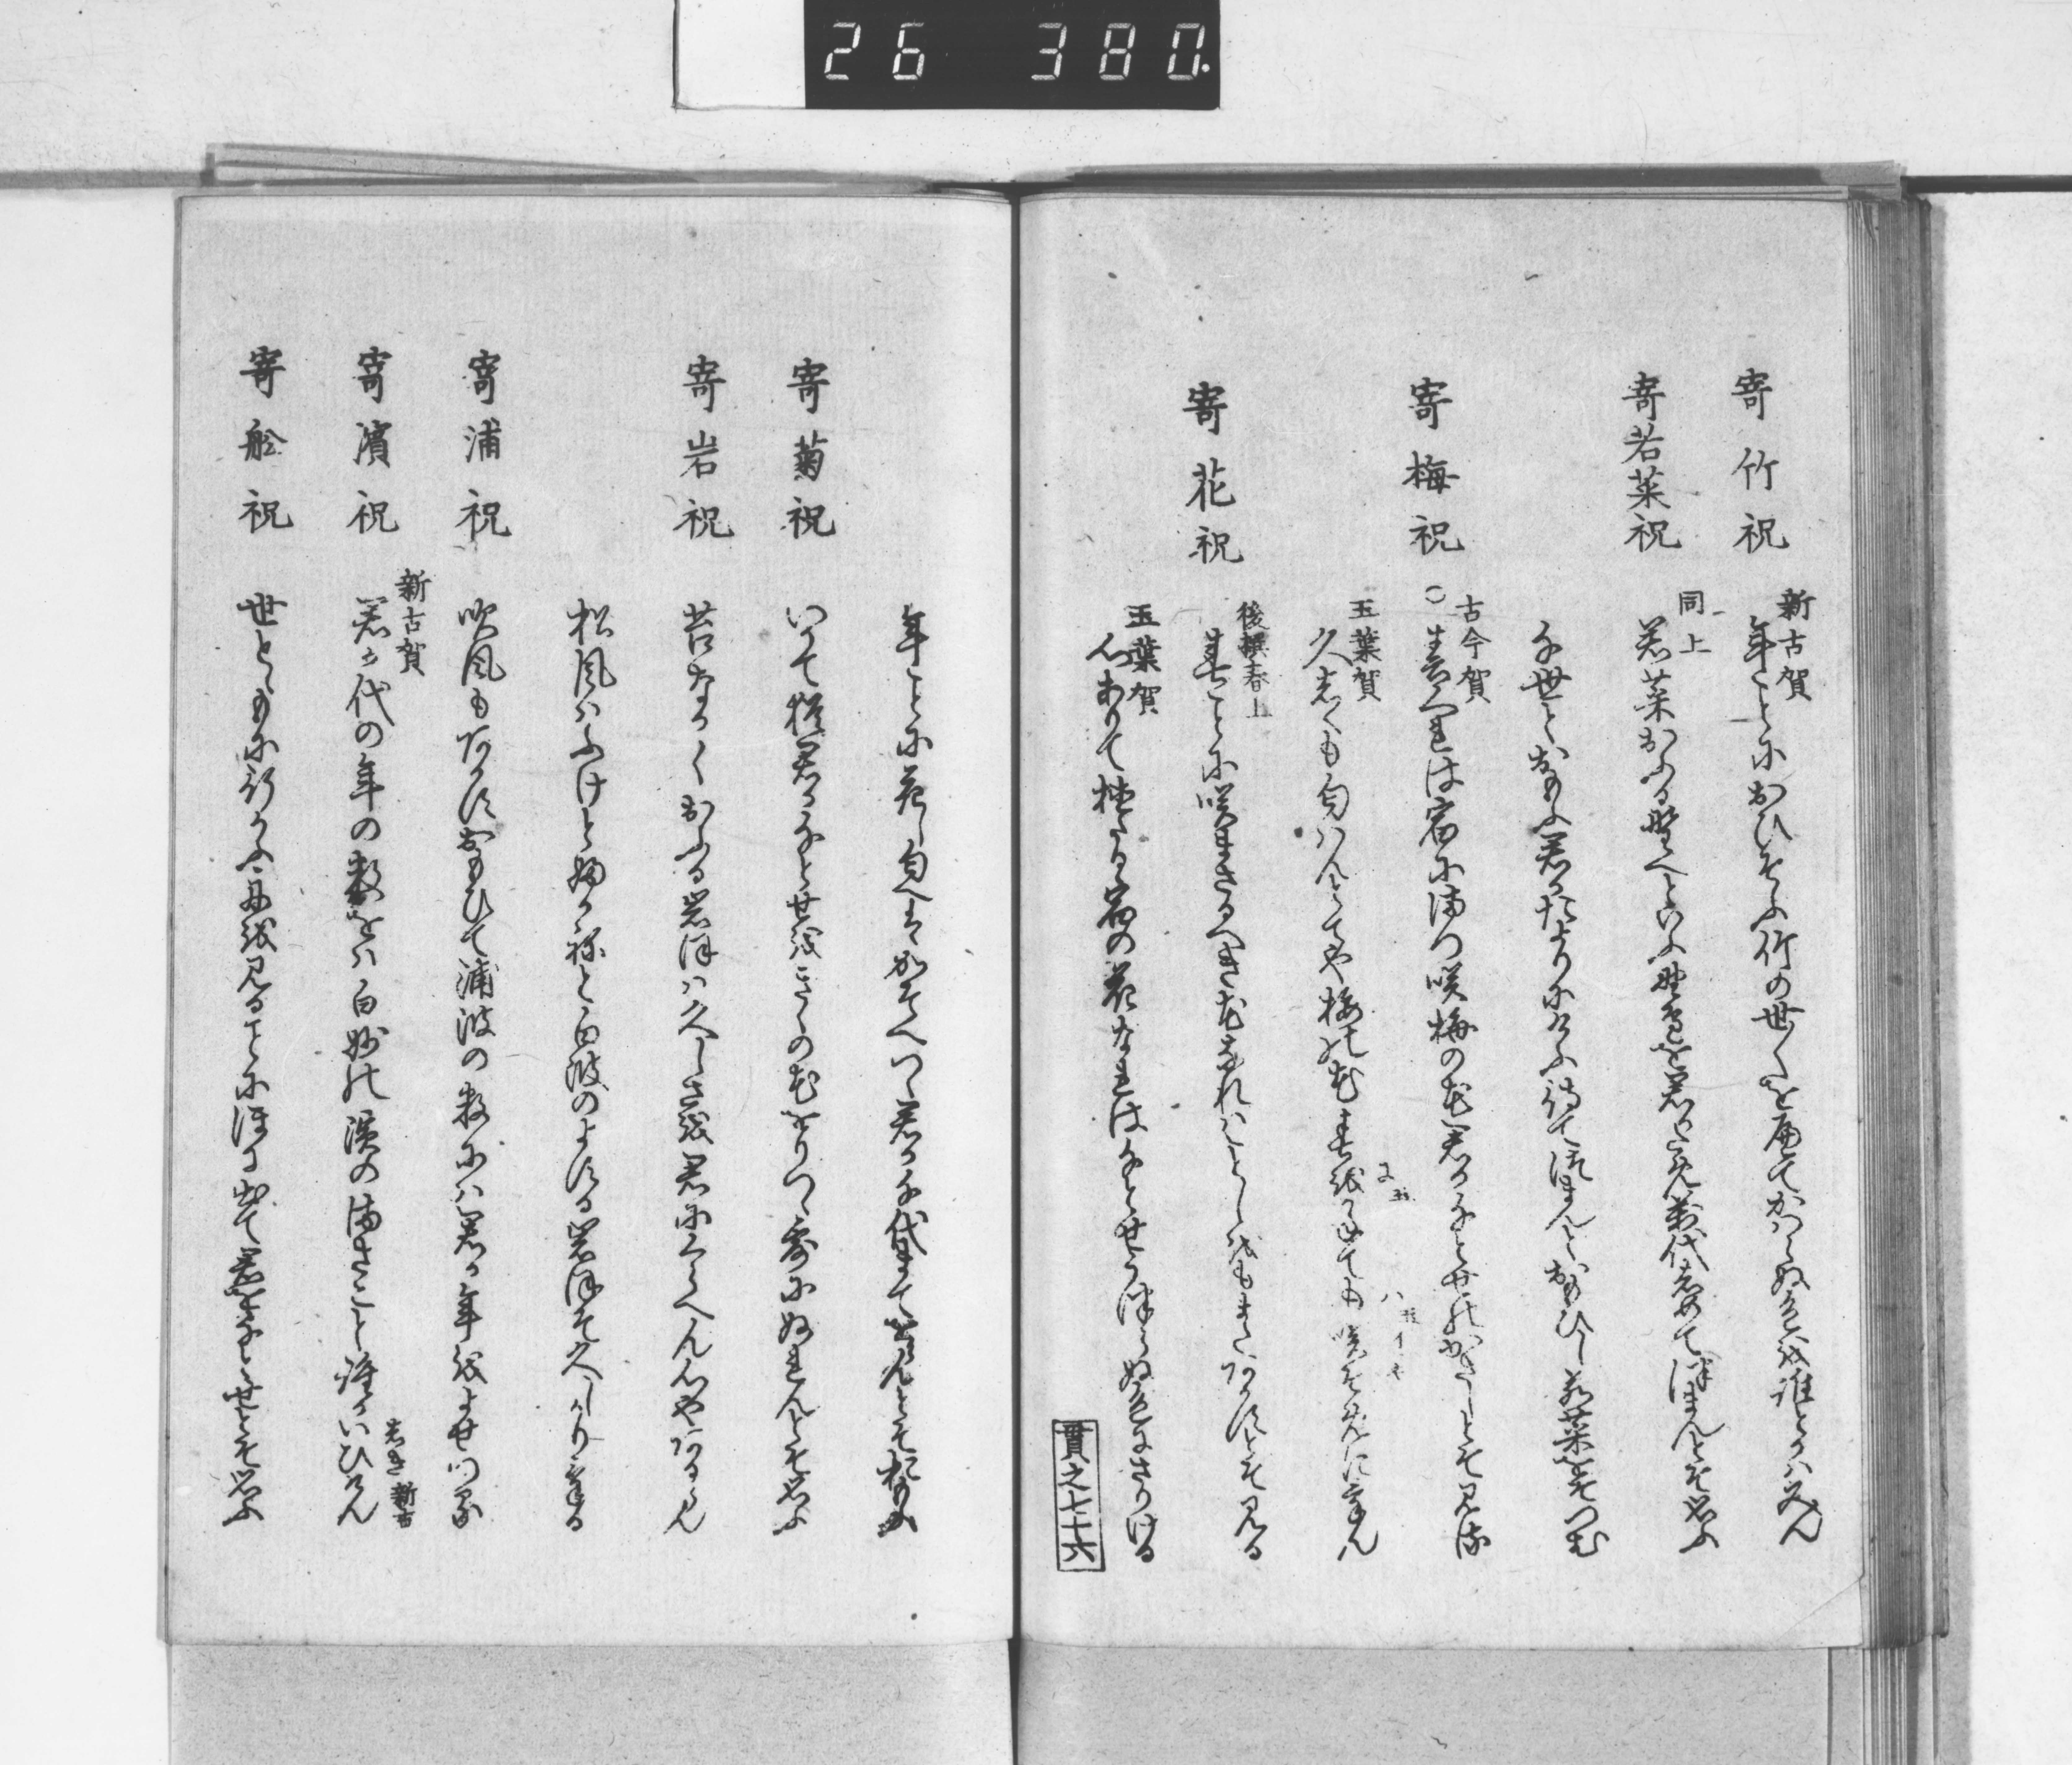 26 380.
寄竹祝
新古賀
年ことにおひそふ竹の世々を歴てかはらぬ色を誰とかはみん
寄若菜祝
同上
若菜おふる野へといふ野へを君かため万代しめてつまんとそ思ふ
千世とおもふ君かたよりにけふ待てつまんとおもひし若菜をそつむ
寄梅祝
古今賀
○春くれは宿にまつ咲梅の花君か千とせのかさしとそ見る
玉葉賀
久しくも匂はんとてや梅の花春をかねても咲そめにけん
寄花祝
後撰春上
春ことに咲まさるへき花なれはことしをもまたあかすとそ見る
玉葉賀
心ありて植たる宿の花なれは千とせうつらぬ色にさりける
貫之七十六
年ことに花し匂へはかそへつゝ君か千代まて
寄菊祝
いかて猶君か千とせをきくの花をりつゝ露にぬれんとそ思ふ
寄岩祝
苔なかくおふる岩ほの久しさを君にくらへん心やあるらん
松風はふけとふかねと白波のよする岩ほそ久しかりける
寄浦祝
吹風もあかすおもひて浦波の数には君か年をよせける
寄濱祝
新古賀
君か代の年の数をは白妙の濱のまさこと誰かいひけん
しき 新古
寄舩祝
世とゝもに行かふ舟を見ることにほに出て君を千とせとそ思ふ